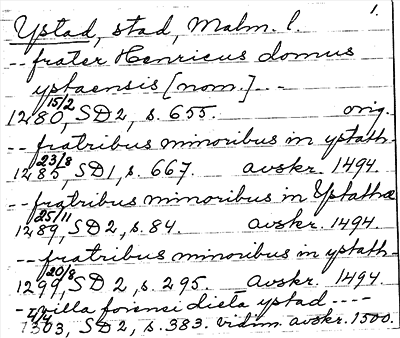 1.
Ystad, stad, Malm. l.
-- frater Henricus domus
ystaensis [nom.] - -
15/2
1280, SD2, s. 655. orig.
-- fratribus minoribus in ystath -
23/8
1285, SD1, s. 667. avskr. 1494.
-- fratribus minoribus in Ystatha
25/11
1289, SD2, s. 84. avskr. 1494
-- fratribus minoribus in ystath -
20/8
1299, SD2, s. 295. avskr. 1494.
- villa forensi dicta ystad ----
1303, SD2, s. 383. vidim. avskr. 1500.